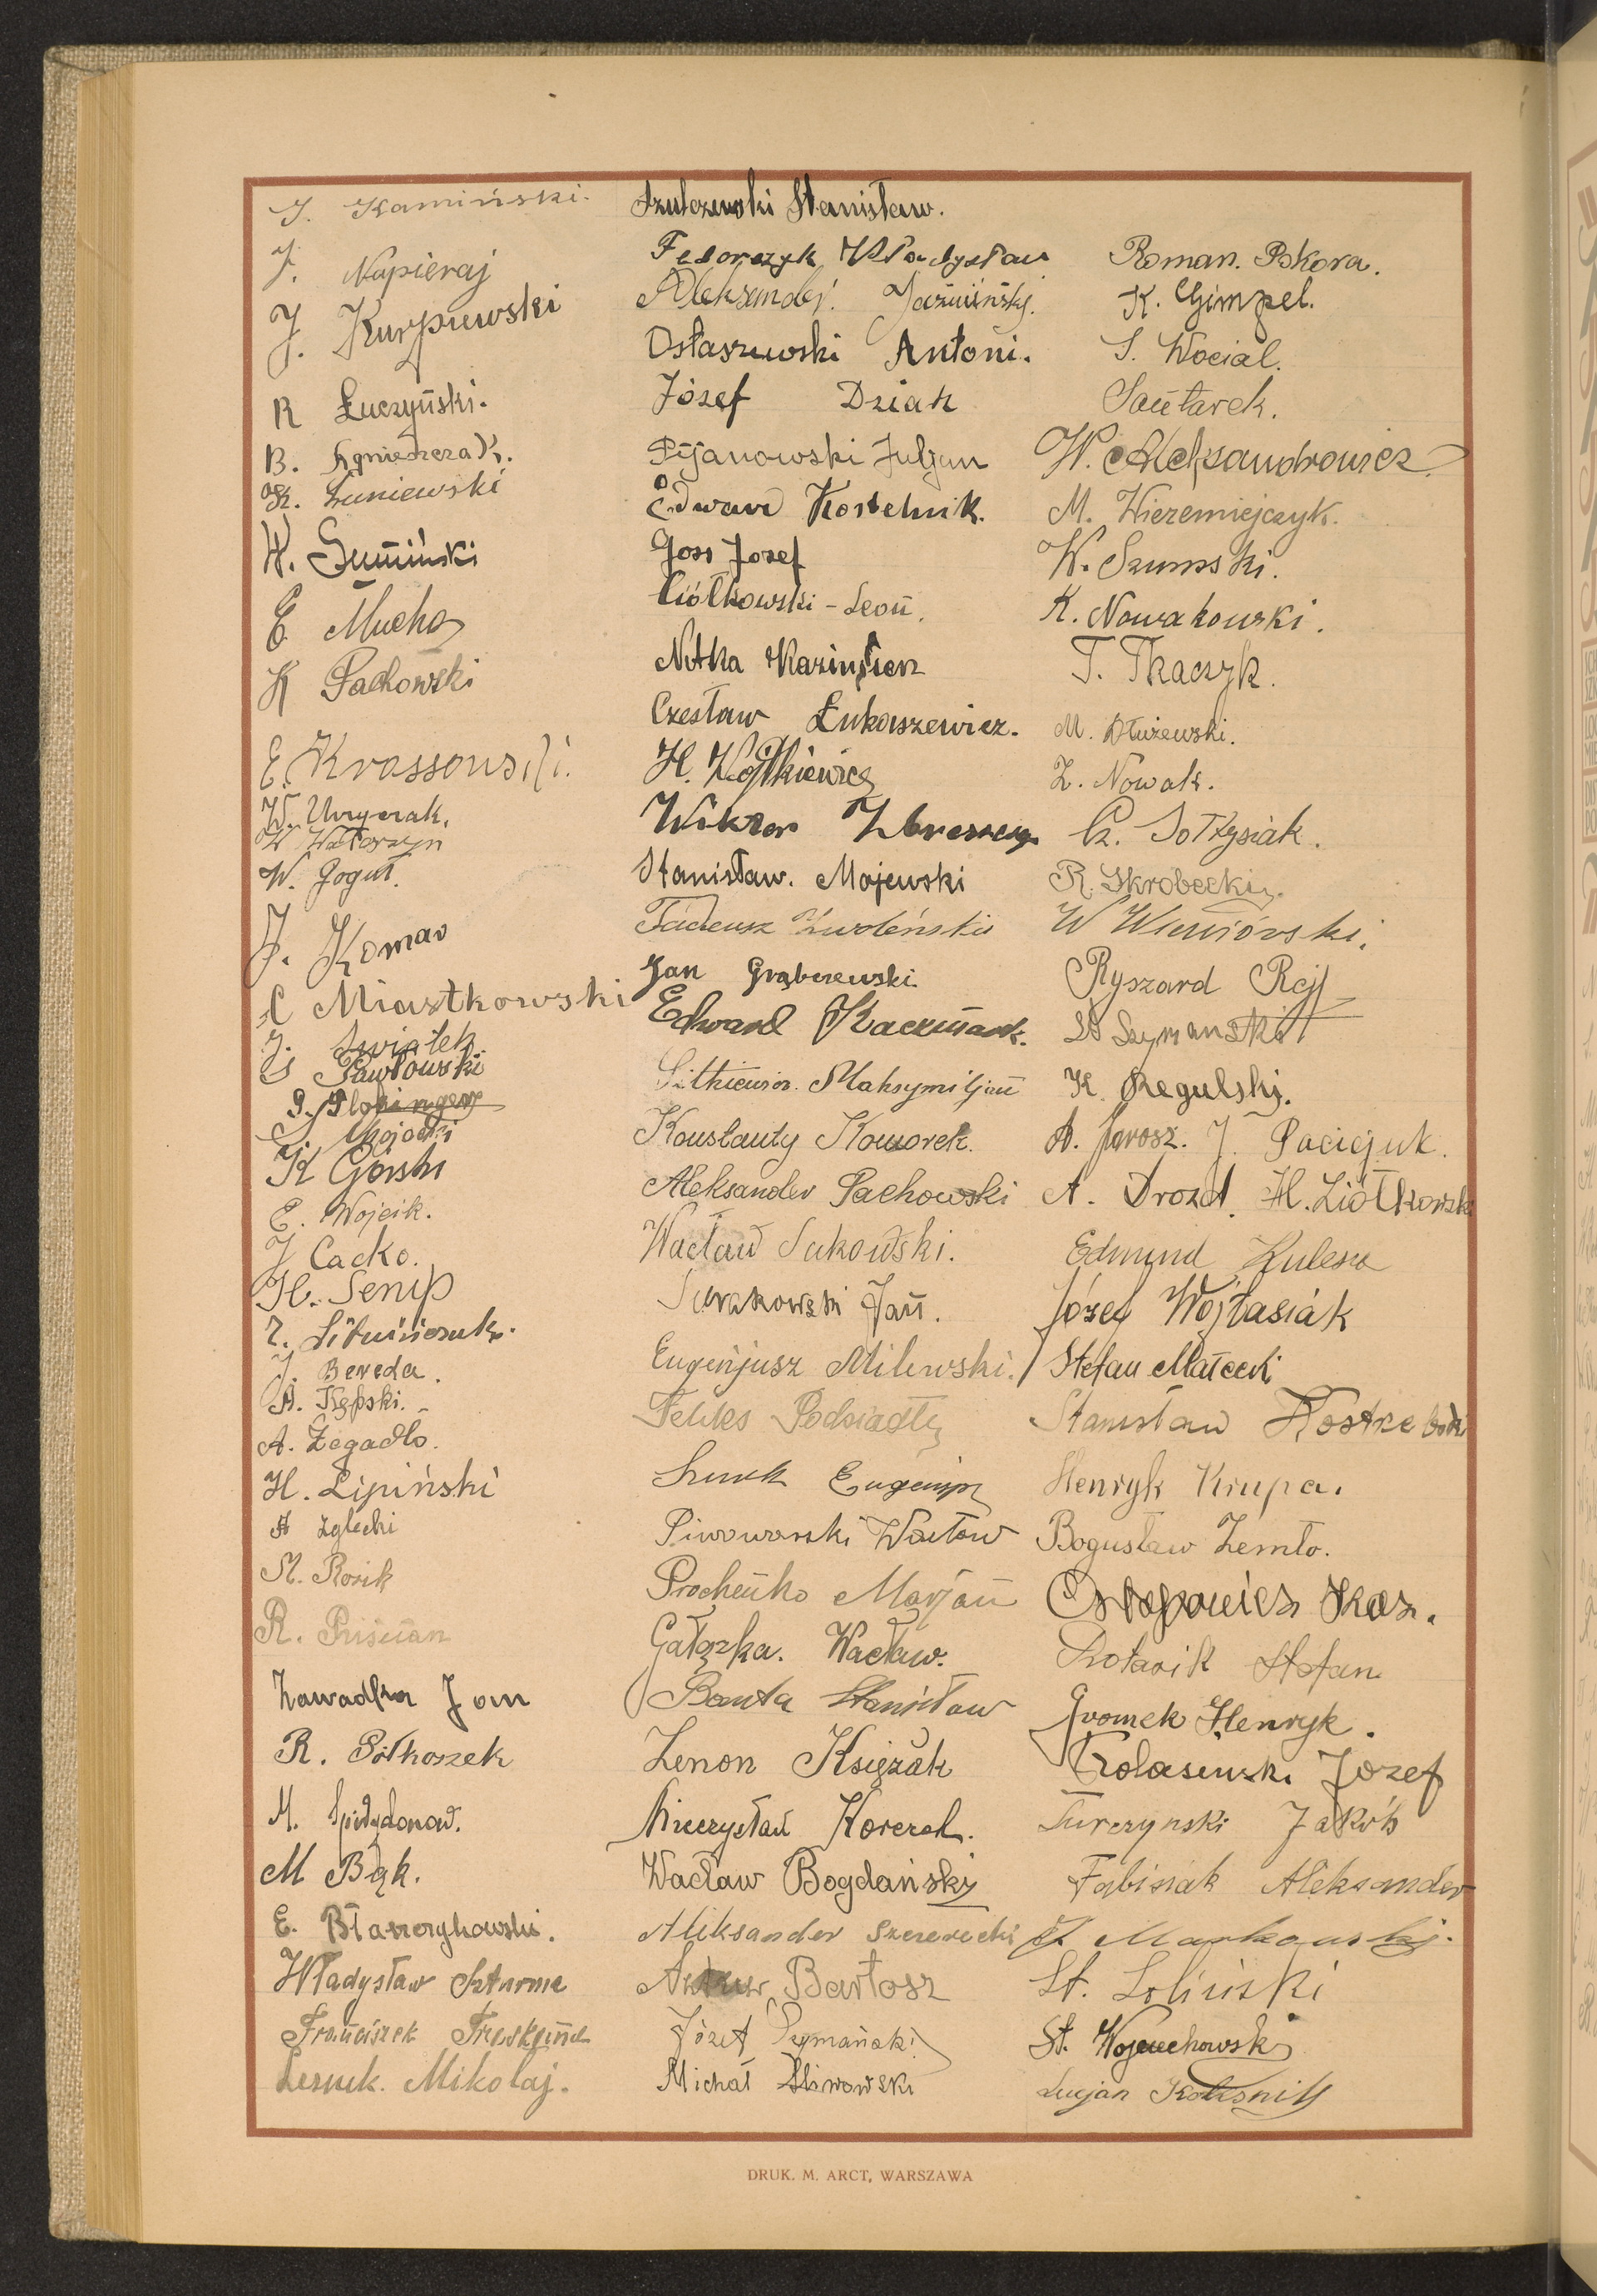 J. Kamiński.
J. Napieraj
J. Kurpiewski
R Łuczyński.
B. Agnieszczak.
K. Łuniewski
W. Sumiński
E. Mucha
K Pachowski
E. Krassowski.
W. Uryszak.
W. Gogut.
J. Komar
C Miastkowski
J. Świątek
S Pawłowski
K Górski
E. Wójcik.
J Cacko.
H. Semp
Z. Litwińczuk.
J. Bereda.
A. Kępski.
A. Żegadło.
H. Lipiński
A Zglecki
M. Rosik
R.
Zawadka Jan
R. Półkoszek
M. Spirydonow.
M Bąk.
E. Błaszczykowski.
Władysław Szturma
Franciszek
Lesiuk. Mikołaj.
Szulczewski Stanisław.
Fedorczyk Władysław
Aleksander Jaźwiński.
Ostaszewski Antoni.
Józef Dziak
Pijanowski Juljan
Edward Kostelnik.
Goss Józef
Ciółkowski - Leon.
Nutka Kazimierz
Czesław Łukaszewicz.
H. Wojtkiewicz
Wiktor
Stanisław. Majewski
Tadeusz Zwoleński
Jan Grąbczewski
Edward Kaczmarek.
Litkiewicz. Maksymiljan
Konstanty Komorek.
Aleksander Pachowski
Wacław Sukowski.
Surakowski Jan.
Eugenjusz Milewski.
Feliks Podsiadły
Eugenjusz
Piwowarski Wacław
Prochenko Marjan
Gałązka. Wacław.
Banta Stanisław
Zenon Księżak
Mieczysław Korczak.
Wacław Bogdański
Aleksander Szczerecki
Bartosz
Józef Szymański
Michał Śliwowski
Roman. Pokora.
K. Gimpel.
S. Wocial.
Sautarek.
W. Aleksandrowicz
M. Wieremiejczyk.
W. Szumski.
K. Nowakowski.
T. Tkaczyk.
M. Dłużewski.
Z. Nowak.
Cz. Sołtysiak.
R. Skrobecki.
W Wiewiórski.
Ryszard Rejf
St Szymański
K. Regulski.
A. Jarosz. J. Paciejuk.
A. Drozd. H. Ziółkowski
Edmund Kulesza
Józef Wojtasiak
Stefan Małecki
Stanisław
Henryk Krupa.
Bogusław Zemło.
Ostapowicz Kaz.
Kotarik Stefan
Gromek Henryk.
Kolasiński Józef
Turczyński Jakób
Fabisiak Aleksander
J. Markowski.
St. Soliński
St. Wojciechowski
Lucjan Kolesnik
DRUK. M. ARCT, WARSZAWA